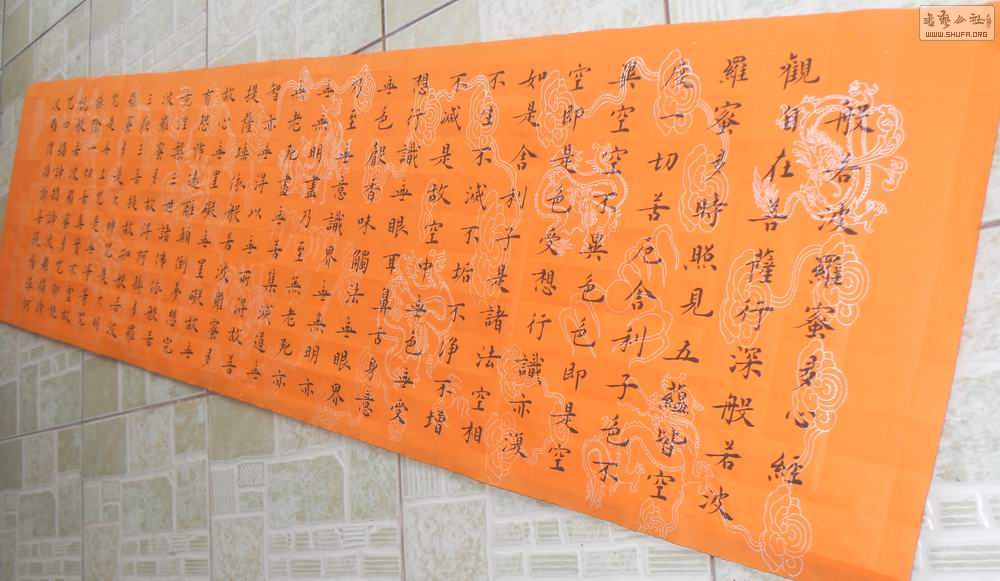 般若波羅蜜多心經
觀自在菩薩行深般若波
羅蜜多時照見五蘊皆空
度一切苦厄舍利子色不
異空空不異色色即是空
空即是色受想行識亦復
如是舍利子是諸法空相
不生不滅不垢不淨不增
不減是故空中無色無受
想行識無眼耳鼻舌身意
無色聲香味觸法無眼界
乃至無意識界無無明亦
無無明盡乃至無老死亦
無老死盡無苦集滅道無
智亦無得以無所得故菩
提薩埵依般若波羅蜜多
故心無罣礙無罣礙故無
有恐怖遠離顛倒夢想究
竟涅槃三世諸佛依般若
波羅蜜多故得阿耨多羅
三藐三菩提故知般若波
羅蜜多是大神咒是大明
咒是無上咒是無等等咒
能除一切苦真實不虛故
說般若波羅蜜多咒即說
咒曰揭諦揭諦波羅揭諦
波羅僧揭諦菩提薩婆訶
书艺公社
WWW.SHUFA.ORG